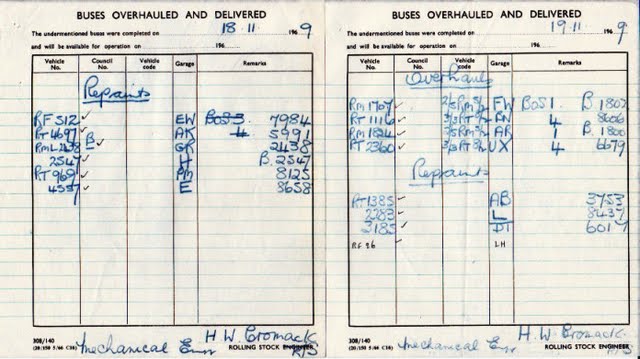 BUSES OVERHAULED AND DELIVERED
The undermentioned buses were completed on 18·11· 1969
and will be available for operation on 196
Vehicle No. Council No. Vehicle code Garage Remarks
Repaints
RF 512 ✓ EW BOS 3. 7984
RT 4697 ✓ AK 4 5991
RML 2438 B ✓ GR 2438
2547 ✓ H B. 2547
RT 969 ✓ PM 8125
4557 ✓ E 8658
308/140
(20/150 5/66 C38)
Mechanical Engr
H W Cromack
ROLLING STOCK ENGINEER
BUSES OVERHAULED AND DELIVERED
The undermentioned buses were completed on 19·11· 1969
and will be available for operation on 196
Vehicle No. Council No. Vehicle code Garage Remarks
Overhauls
RM 1767 ✓ FW BOS 1. B. 1802
RT 1116 ✓ 4 8606
RM 1824 ✓ AR 1 B. 1800
RT 2360 ✓ UX 4 6679
Repaints
RT 1385 ✓ AB 3753
2283 ✓ L 8437
3185 ✓ 6017
RF 26 ✓ LH
308/140
(20/150 5/66 C38)
Mechanical Engr
H. W. Cromack
ROLLING STOCK ENGINEER